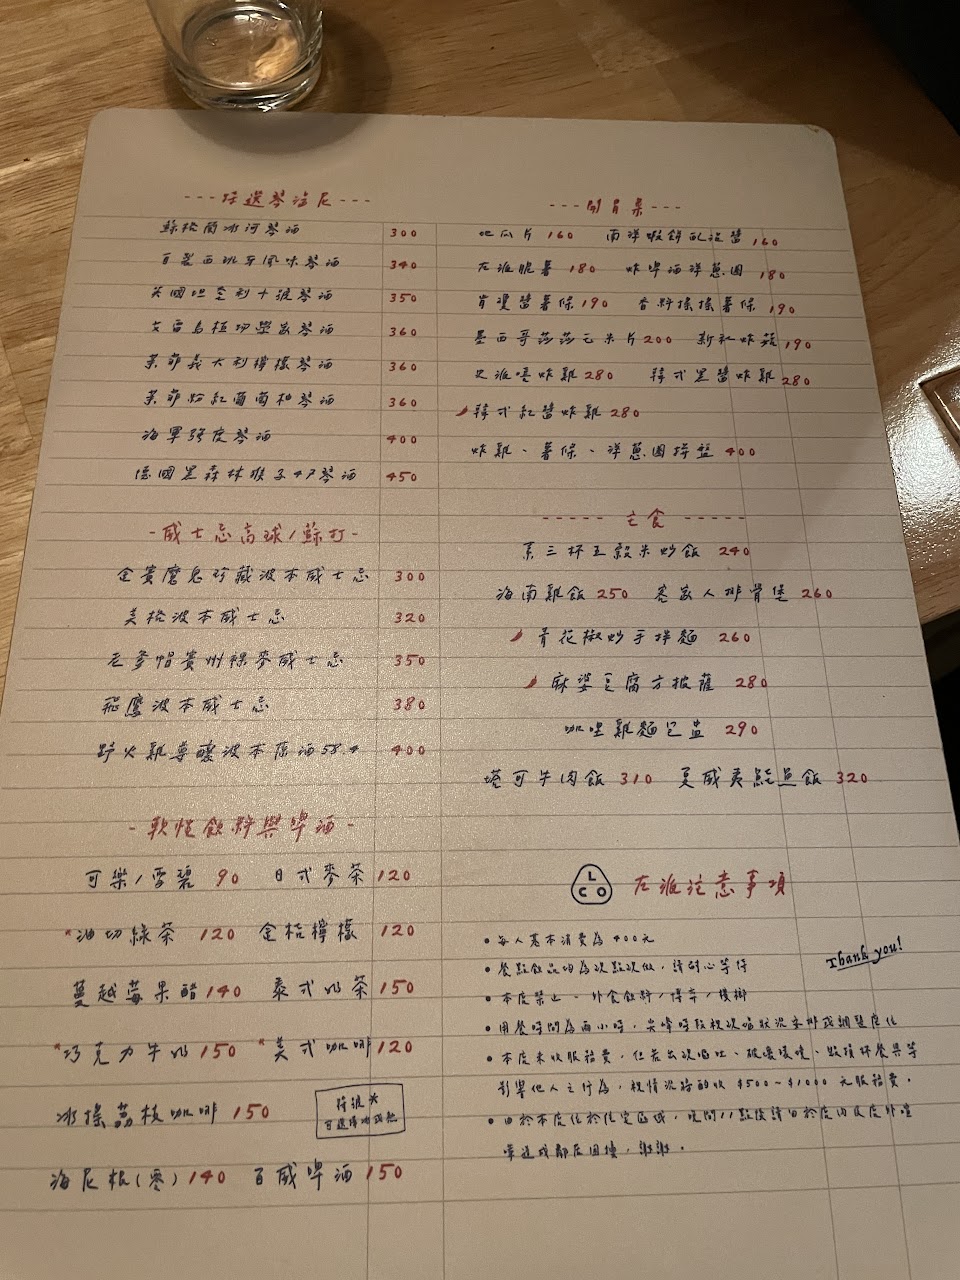 ---任選琴湯尼---
蘇格蘭冰河琴酒 300
百裂西班牙風味琴酒 340
英國坦奎利十號琴酒 350
艾雷島植物學家琴酒 360
茉菲義大利檸檬琴酒 360
茉菲粉紅葡萄柚琴酒 360
海軍強度琴酒 400
德國黑森林猴子47琴酒 450
-威士忌高球/蘇打-
金賓魔鬼珍藏波本威士忌 300
美格波本威士忌 320
老爹帽賓州裸麥威士忌 350
飛鷹波本威士忌 380
野火雞尊釀波本原酒58.4 400
-軟性飲料與啤酒-
可樂/雪碧 90 日式麥茶 120
*油切綠茶 120 金桔檸檬 120
蔓越莓果醋 140 泰式奶茶 150
*巧克力牛奶 150 *美式咖啡 120
冰搖荔枝咖啡 150
符號*
可選擇冰或熱
海尼根(零) 140 百威啤酒 150
---開胃菜---
地瓜片 160 南洋蝦餅乱沾醬 160
左派脆薯 180 炸啤酒洋蔥圈 180
肯瓊醬薯條 190 香料搖搖薯條 190
墨西哥莎莎玉米片 200 新和炸菇 190
史派喀炸雞 280 韓式黑醬炸雞 280
韓式紅醬炸雞 280
炸雞、薯條、洋蔥圈拼盤 400
-----主食-----
素三杯五穀米炒飯 240
海南雞飯 250 客家人排骨堡 260
青花椒炒手拌麵 260
麻婆豆腐方披薩 280
咖哩雞麵包盅 290
塔可牛肉飯 310 夏威夷鮭魚飯 320
LCO 左派注意事項
Thank you!
•每人基本消費為400元
•餐點飲品均為次點次做，請耐心等待
•本店禁止-外食飲料/博弈/檳榔
•用餐時間為兩小時，尖峰時段視現場狀況安排或調整座位
•本店未收服務費，但若出現嘔吐、破壞環境、毀損杯餐具等
影響他人之行為，視情況將酌收$500~$1000元服務費。
•由於本店位於住宅區域，晚間11點後請勿於店內及店外喧
嘩造成鄰居困擾，謝謝。